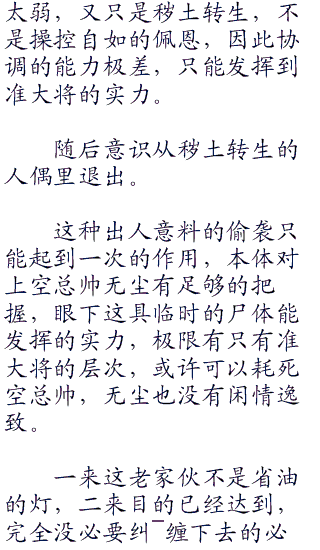 太弱，又只是秽土转生，不
是操控自如的佩恩，因此协
调的能力极差，只能发挥到
准大将的实力。
随后意识从秽土转生的
人偶里退出。
这种出人意料的偷袭只
能起到一次的作用，本体对
上空总帅无尘有足够的把
握，眼下这具临时的尸体能
发挥的实力，极限有只有准
大将的层次，或许可以耗死
空总帅，无尘也没有闲情逸
致。
一来这老家伙不是省油
的灯，二来目的已经达到，
完全没必要纠¯缠下去的必